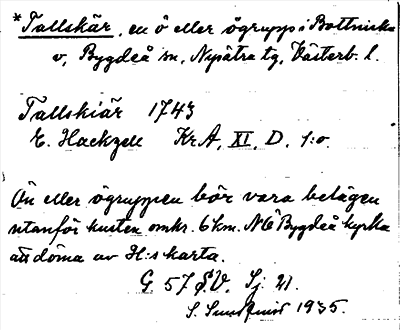 *Tallskär, en ö eller ögrupp i Bottniska
v, Bygdeå sn, Nysätra tg, Västerb. l.
Tallskiär 1743
E. Hackzell Kr.A, XI, D, 1:o.
Ön eller ögruppen bör vara belägen
utanför kusten omkr. 6 km. NÖ Bygdeå kyrka
att döma av H:s karta.
G 57 S.V. Sj. 21.
S. Sundquist 1935.